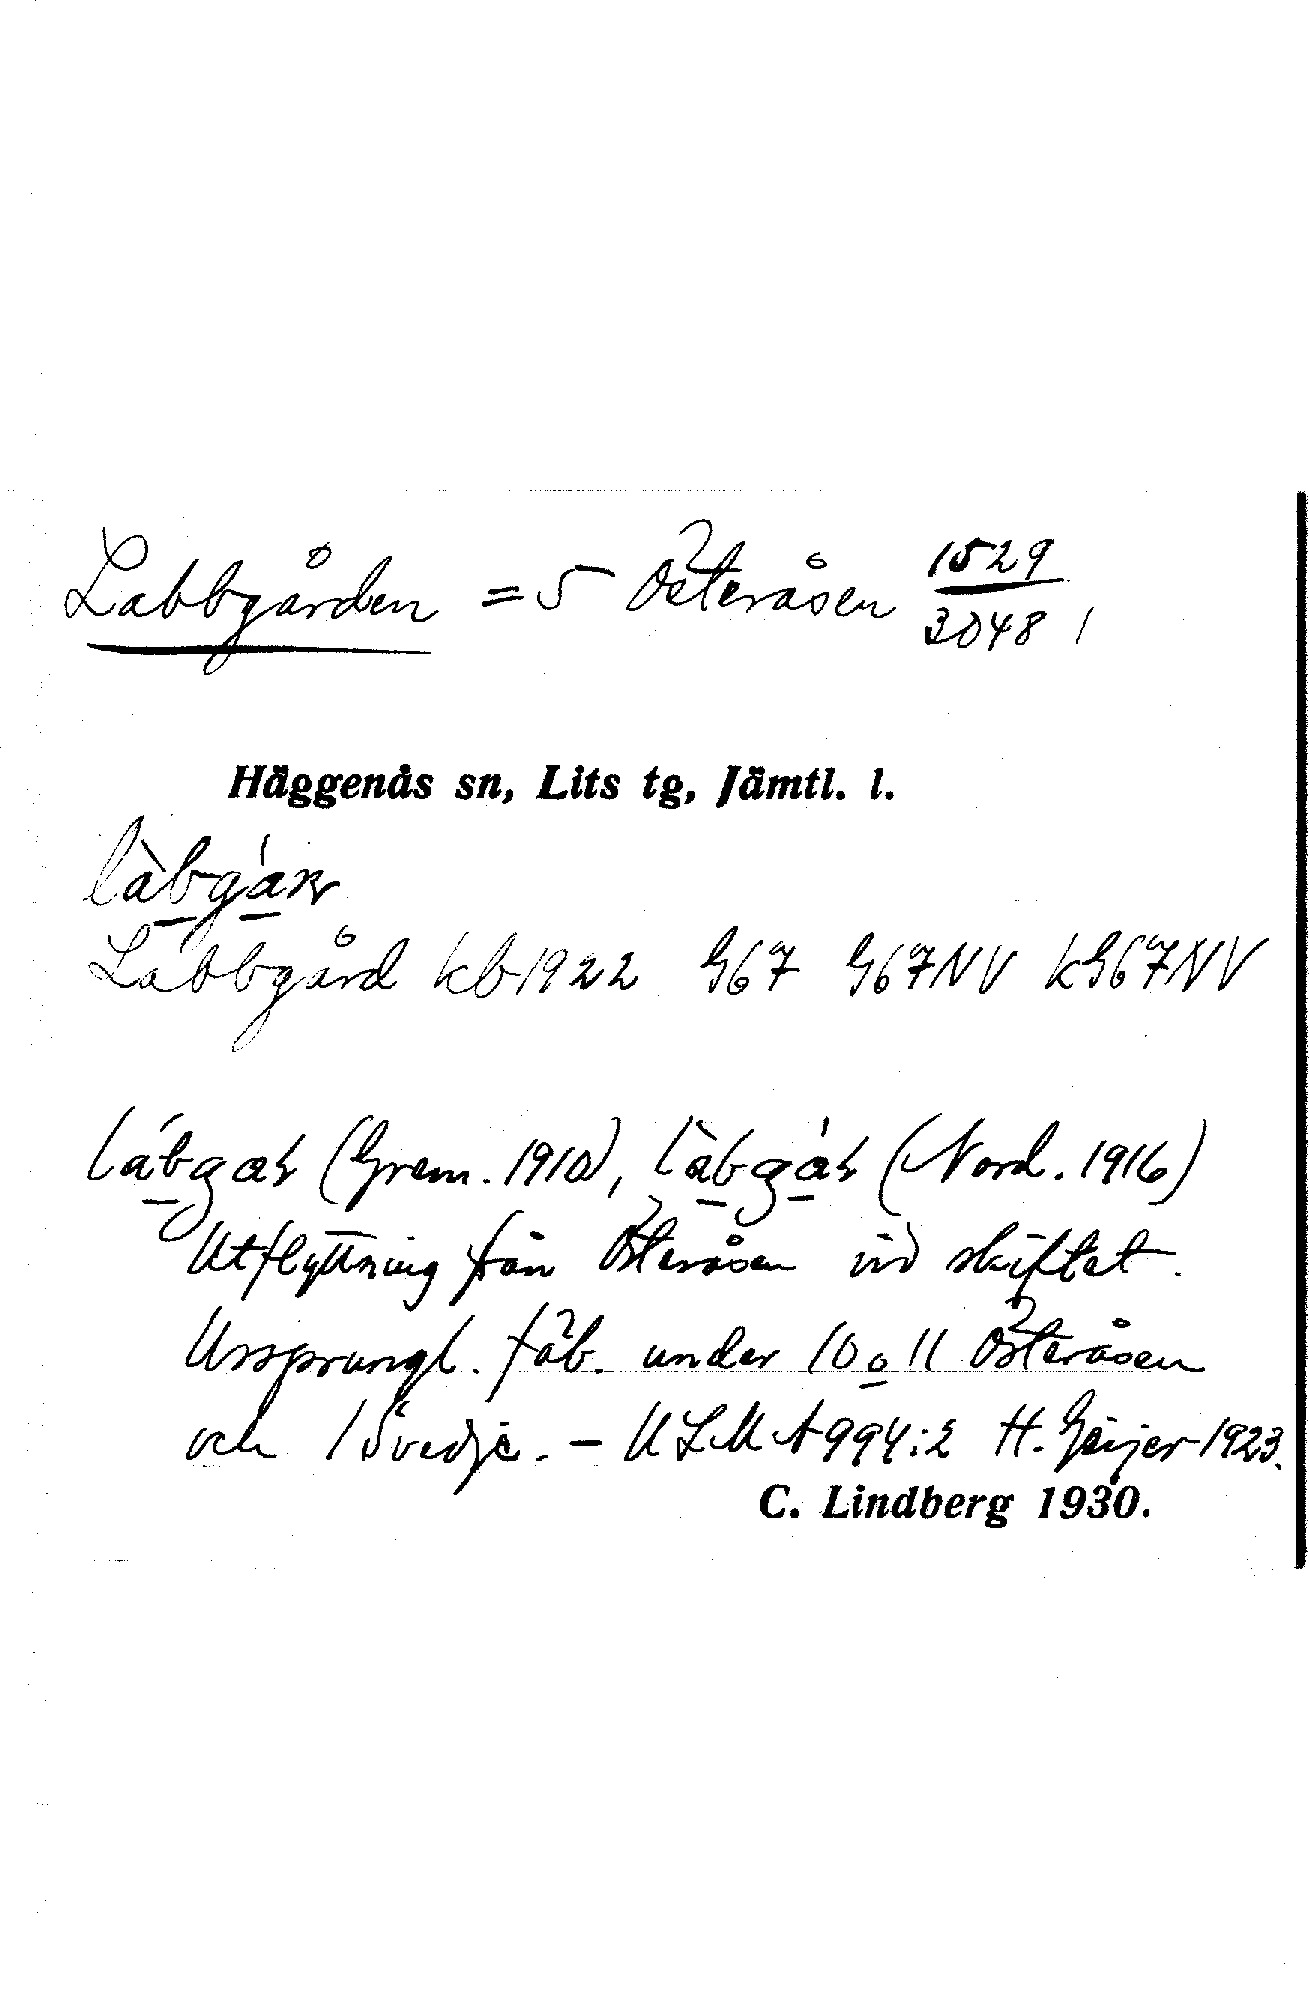 Labbgården = 5 Österåsen 1529/3048
Häggenås sn, Lits tg, Jämtl. l.
Labbgård kb 1922 G67 G67NV kG67NV
làbgaʀ (Grem. 1910), làbgáʀ (Nord. 1916)
Utflyttning från Österåsen vid skiftet.
Ursprungl. fäb. under 10 o 11 Österåsen
och 1 Svedje. – ULMA 994:2 H. Geijer 1923.
C. Lindberg 1930.